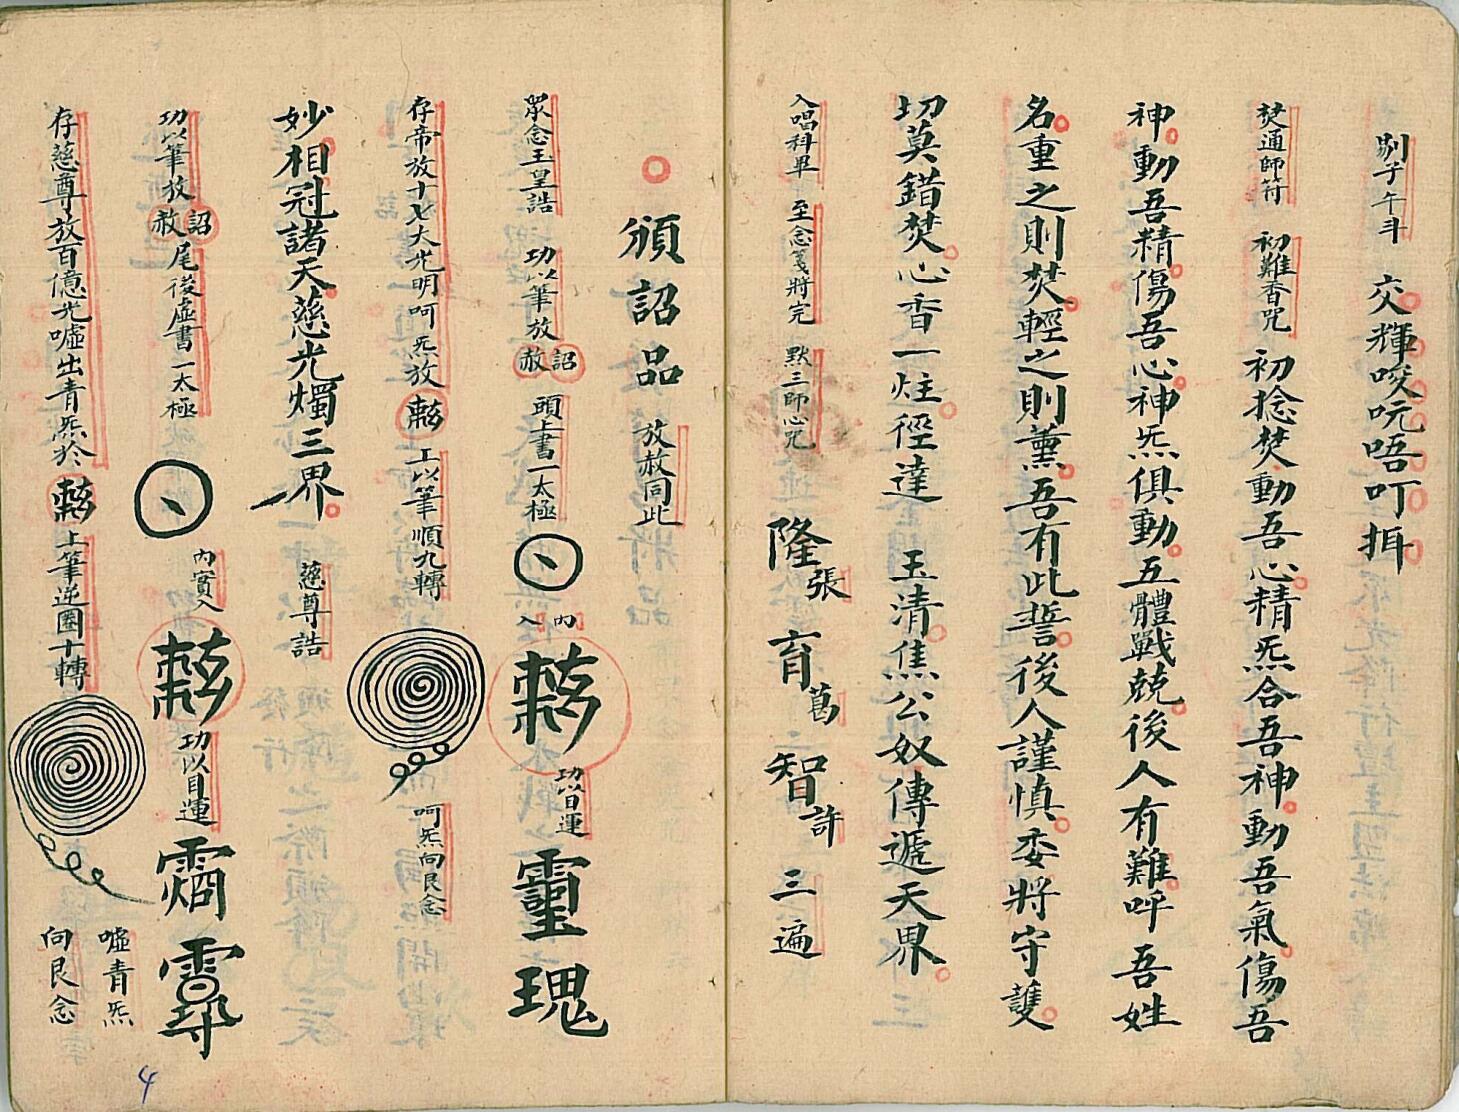 剔子午斗　交輝㕙吭唔叮抇
焚通師符　初難香咒　初捻焚動吾心精炁合吾神動吾氣傷吾
神動吾精傷吾心神炁俱動五體戰兢後人有難呼吾姓
名重之則焚輕之則薰吾有此誓後人謹慎委將守護
切莫錯焚心香一炷徑達　玉清焦公奴傳遞天界
入唱科畢　至念箋將完　默三師心咒　隆張　育葛　智許　三遍
頒詔品　放赦同此
眾念玉皇誥　功以筆放詔赦頭上書一太極　內入　功以目運
存帝放十七大光明呵炁放　工以筆順九轉　呵炁向艮念
妙相冠諸天慈光燭三界　慈尊誥
功以筆放詔赦尾後虛書一太極　內實入　功以目運　噓青炁
存慈尊放百億光噓出青炁於　上筆逆圈十轉　向艮念
4